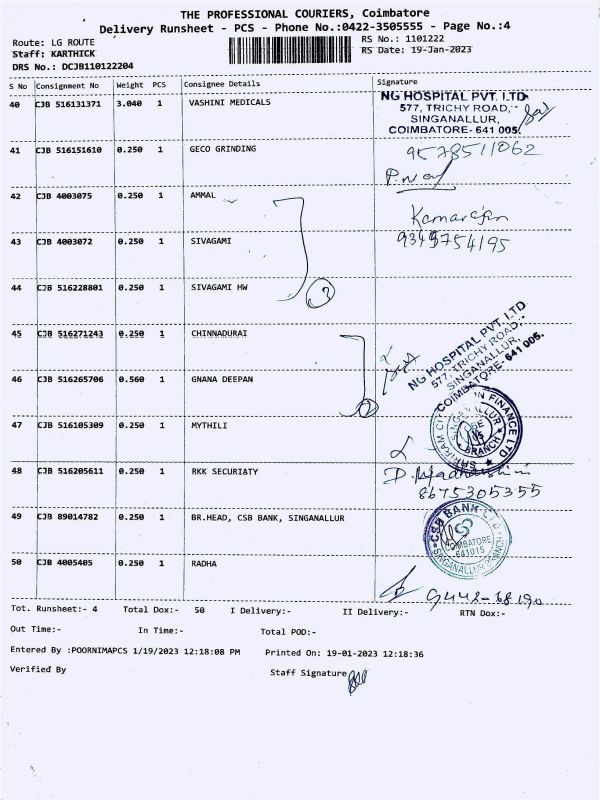 THE PROFESSIONAL COURIERS, Coimbatore
Delivery Runsheet - PCS - Phone No.:0422-3505555 - Page No.:4
Route: LG ROUTE RS No.: 1101222
Staff: KARTHICK RS Date: 19-Jan-2023
DRS No.: DCJB110122204
S No Consignment No Weight PCS Consignee Details Signature
40 CJB 516131371 3.040 1 VASHINI MEDICALS
NG HOSPITAL PVT. LTD
577, TRICHY ROAD,
SINGANALLUR,
COIMBATORE- 641 005.
41 CJB 516151610 0.250 1 GECO GRINDING 9578511062
42 CJB 4003075 0.250 1 AMMAL
43 CJB 4003072 0.250 1 SIVAGAMI 9349754195
44 CJB 516228801 0.250 1 SIVAGAMI HW
3
45 CJB 516271243 0.250 1 CHINNADURAI
NG HOSPITAL PVT. LTD
577, TRICHY ROAD,
SINGANALLUR,
COIMBATORE- 641 005.
46 CJB 516265706 0.560 1 GNANA DEEPAN
2
47 CJB 516105309 0.250 1 MYTHILI
FINANCE LTD
SINGANALLUR
BRANCH
48 CJB 516205611 0.250 1 RKK SECURIATY
8675305355
49 CJB 89014782 0.250 1 BR.HEAD, CSB BANK, SINGANALLUR
CSB BANK LTD
COIMBATORE
641015
SINGANALLUR BRANCH
50 CJB 4005405 0.250 1 RADHA
Tot. Runsheet:- 4 Total Dox:- 50 I Delivery:- II Delivery:- RTN Dox:-
Out Time:- In Time:- Total POD:-
Entered By :POORNIMAPCS 1/19/2023 12:18:08 PM Printed On: 19-01-2023 12:18:36
Verified By Staff Signature